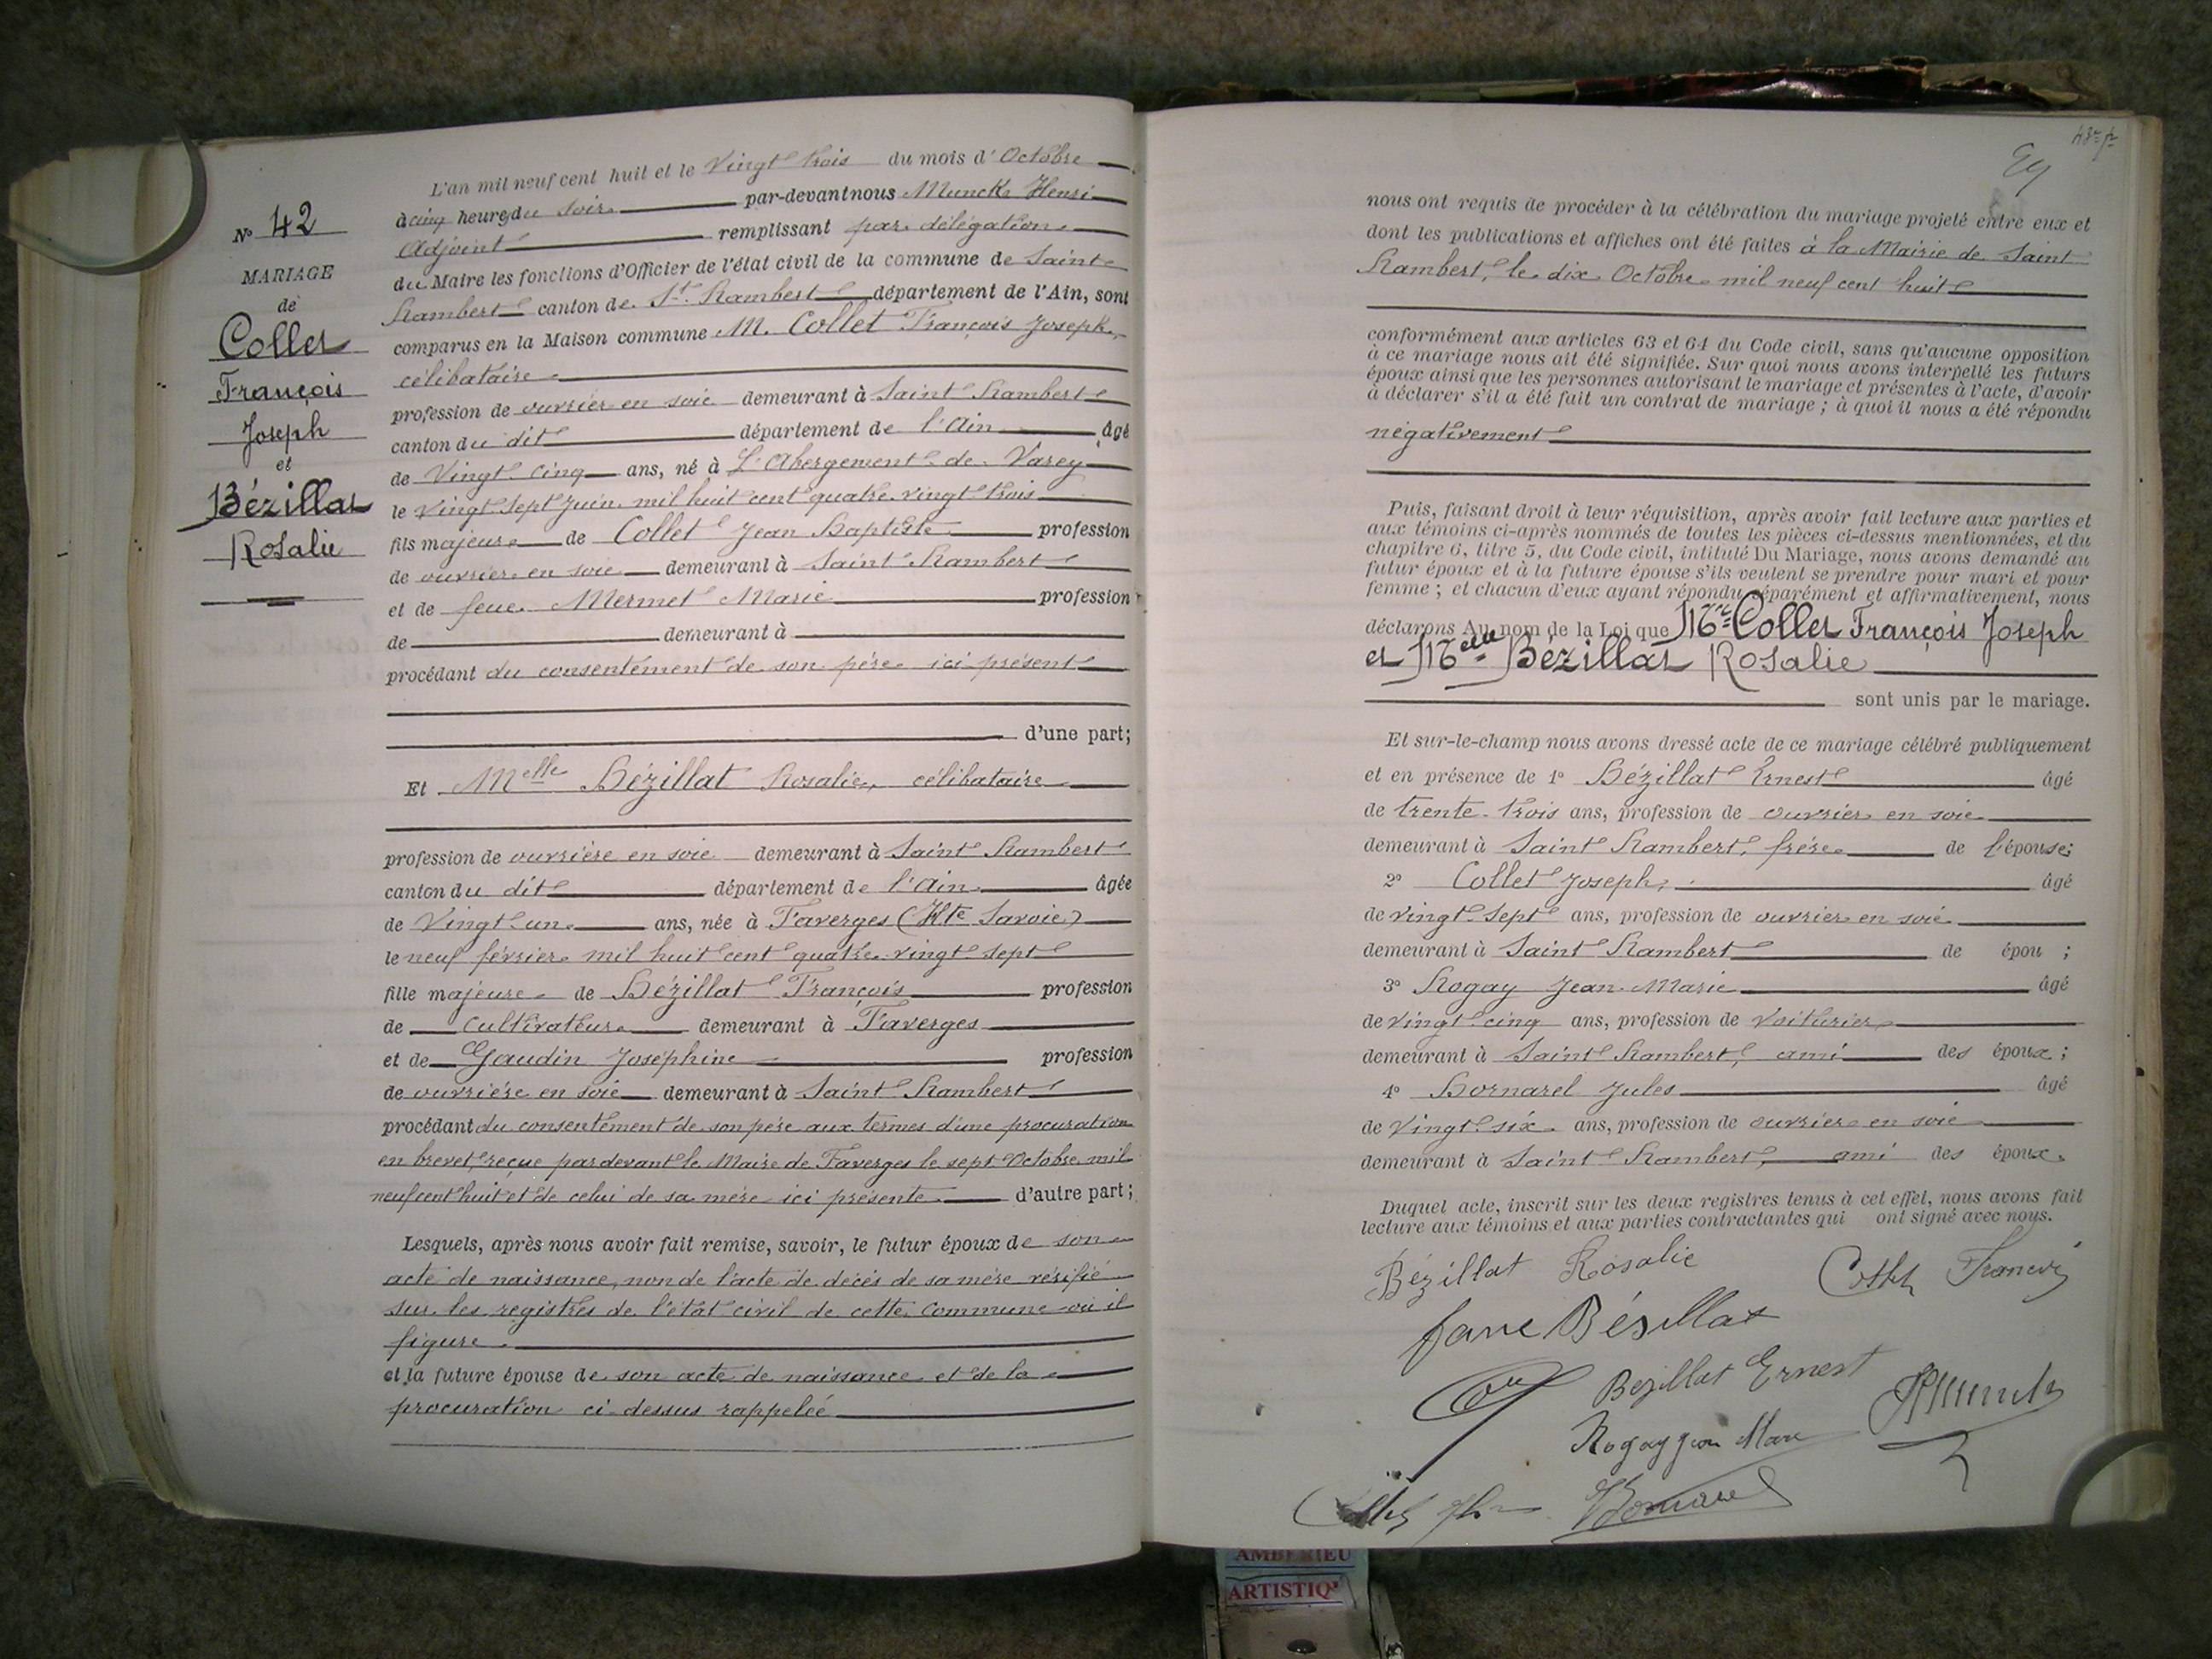 N° 42
MARIAGE
de
Collet
François
Joseph
et
Bézillat
Rosalie
L'an mil neuf cent huit et le Vingt trois du mois d'Octobre
à cinq heures du soir par-devant nous Munck Henri
Adjoint remplissant par délégation
du Maire les fonctions d'Officier de l'état civil de la commune de Saint
Rambert canton de St. Rambert département de l'Ain, sont
comparus en la Maison commune M. Collet François Joseph,
célibataire
profession de ouvrier en soie demeurant à Saint Rambert
canton du dit département de l'Ain âgé
de Vingt cinq ans, né à L'Abergement de Varey
le vingt sept juin mil huit cent quatre vingt trois
fils majeur de Collet Jean Baptiste profession
de ouvrier en soie demeurant à Saint Rambert
et de feue Mermet Marie profession
de demeurant à
procédant du consentement de son père ici présent
d'une part;
Et Melle Bézillat Rosalie, célibataire
profession de ouvrière en soie demeurant à Saint Rambert
canton du dit département de l'Ain âgée
de Vingt un ans, née à Faverges (Hte Savoie)
le neuf février mil huit cent quatre vingt sept
fille majeure de Bézillat François profession
de cultivateur demeurant à Faverges
et de Gaudin Joséphine profession
de ouvrière en soie demeurant à Saint Rambert
procédant du consentement de son père aux termes d'une procuration
en brevet, reçue par devant le Maire de Faverges le sept Octobre mil
neuf cent huit et de celui de sa mère ici présente d'autre part;
Lesquels, après nous avoir fait remise, savoir, le futur époux de son
acte de naissance, non de l'acte de décès de sa mère vérifié
sur les registres de l'état civil de cette Commune où il
figure
et la future épouse de son acte de naissance et de la
procuration ci-dessus rappelée
nous ont requis de procéder à la célébration du mariage projeté entre eux et
dont les publications et affiches ont été faites à la Mairie de Saint
Rambert, le dix Octobre mil neuf cent huit
conformément aux articles 63 et 64 du Code civil, sans qu'aucune opposition
à ce mariage nous ait été signifiée. Sur quoi nous avons interpellé les futurs
époux ainsi que les personnes autorisant le mariage et présentes à l'acte, d'avoir
à déclarer s'il a été fait un contrat de mariage; à quoi il nous a été répondu
négativement
Puis, faisant droit à leur réquisition, après avoir fait lecture aux parties et
aux témoins ci-après nommés de toutes les pièces ci-dessus mentionnées, et du
chapitre 6, titre 5, du Code civil, intitulé Du Mariage, nous avons demandé au
futur époux et à la future épouse s'ils veulent se prendre pour mari et pour
femme; et chacun d'eux ayant répondu séparément et affirmativement, nous
déclarons Au nom de la Loi que Mr Collet François Joseph
et Melle Bézillat Rosalie
sont unis par le mariage.
Et sur-le-champ nous avons dressé acte de ce mariage célébré publiquement
et en présence de 1° Bézillat Ernest âgé
de trente-trois ans, profession de ouvrier en soie
demeurant à Saint Rambert, frère de l'épouse;
2° Collet Joseph, âgé
de vingt-sept ans, profession de ouvrier en soie
demeurant à Saint Rambert de épou ;
3° Rogay Jean-Marie âgé
de vingt-cinq ans, profession de voiturier
demeurant à Saint Rambert, ami des époux;
4° Bornarel Jules âgé
de Vingt-six ans, profession de ouvrier en soie
demeurant à Saint Rambert, ami des époux.
Duquel acte, inscrit sur les deux registres tenus à cet effet, nous avons fait
lecture aux témoins et aux parties contractantes qui ont signé avec nous.
Bézillat Rosalie
Bésillat
Bezillat Ernest
Rogay
AMBERIEU
ARTISTIQ